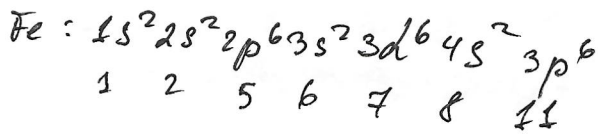 Fe : 1s² 2s² 2p⁶ 3s² 3d⁶ 4s² 3p⁶
1 2 5 6 7 8 11